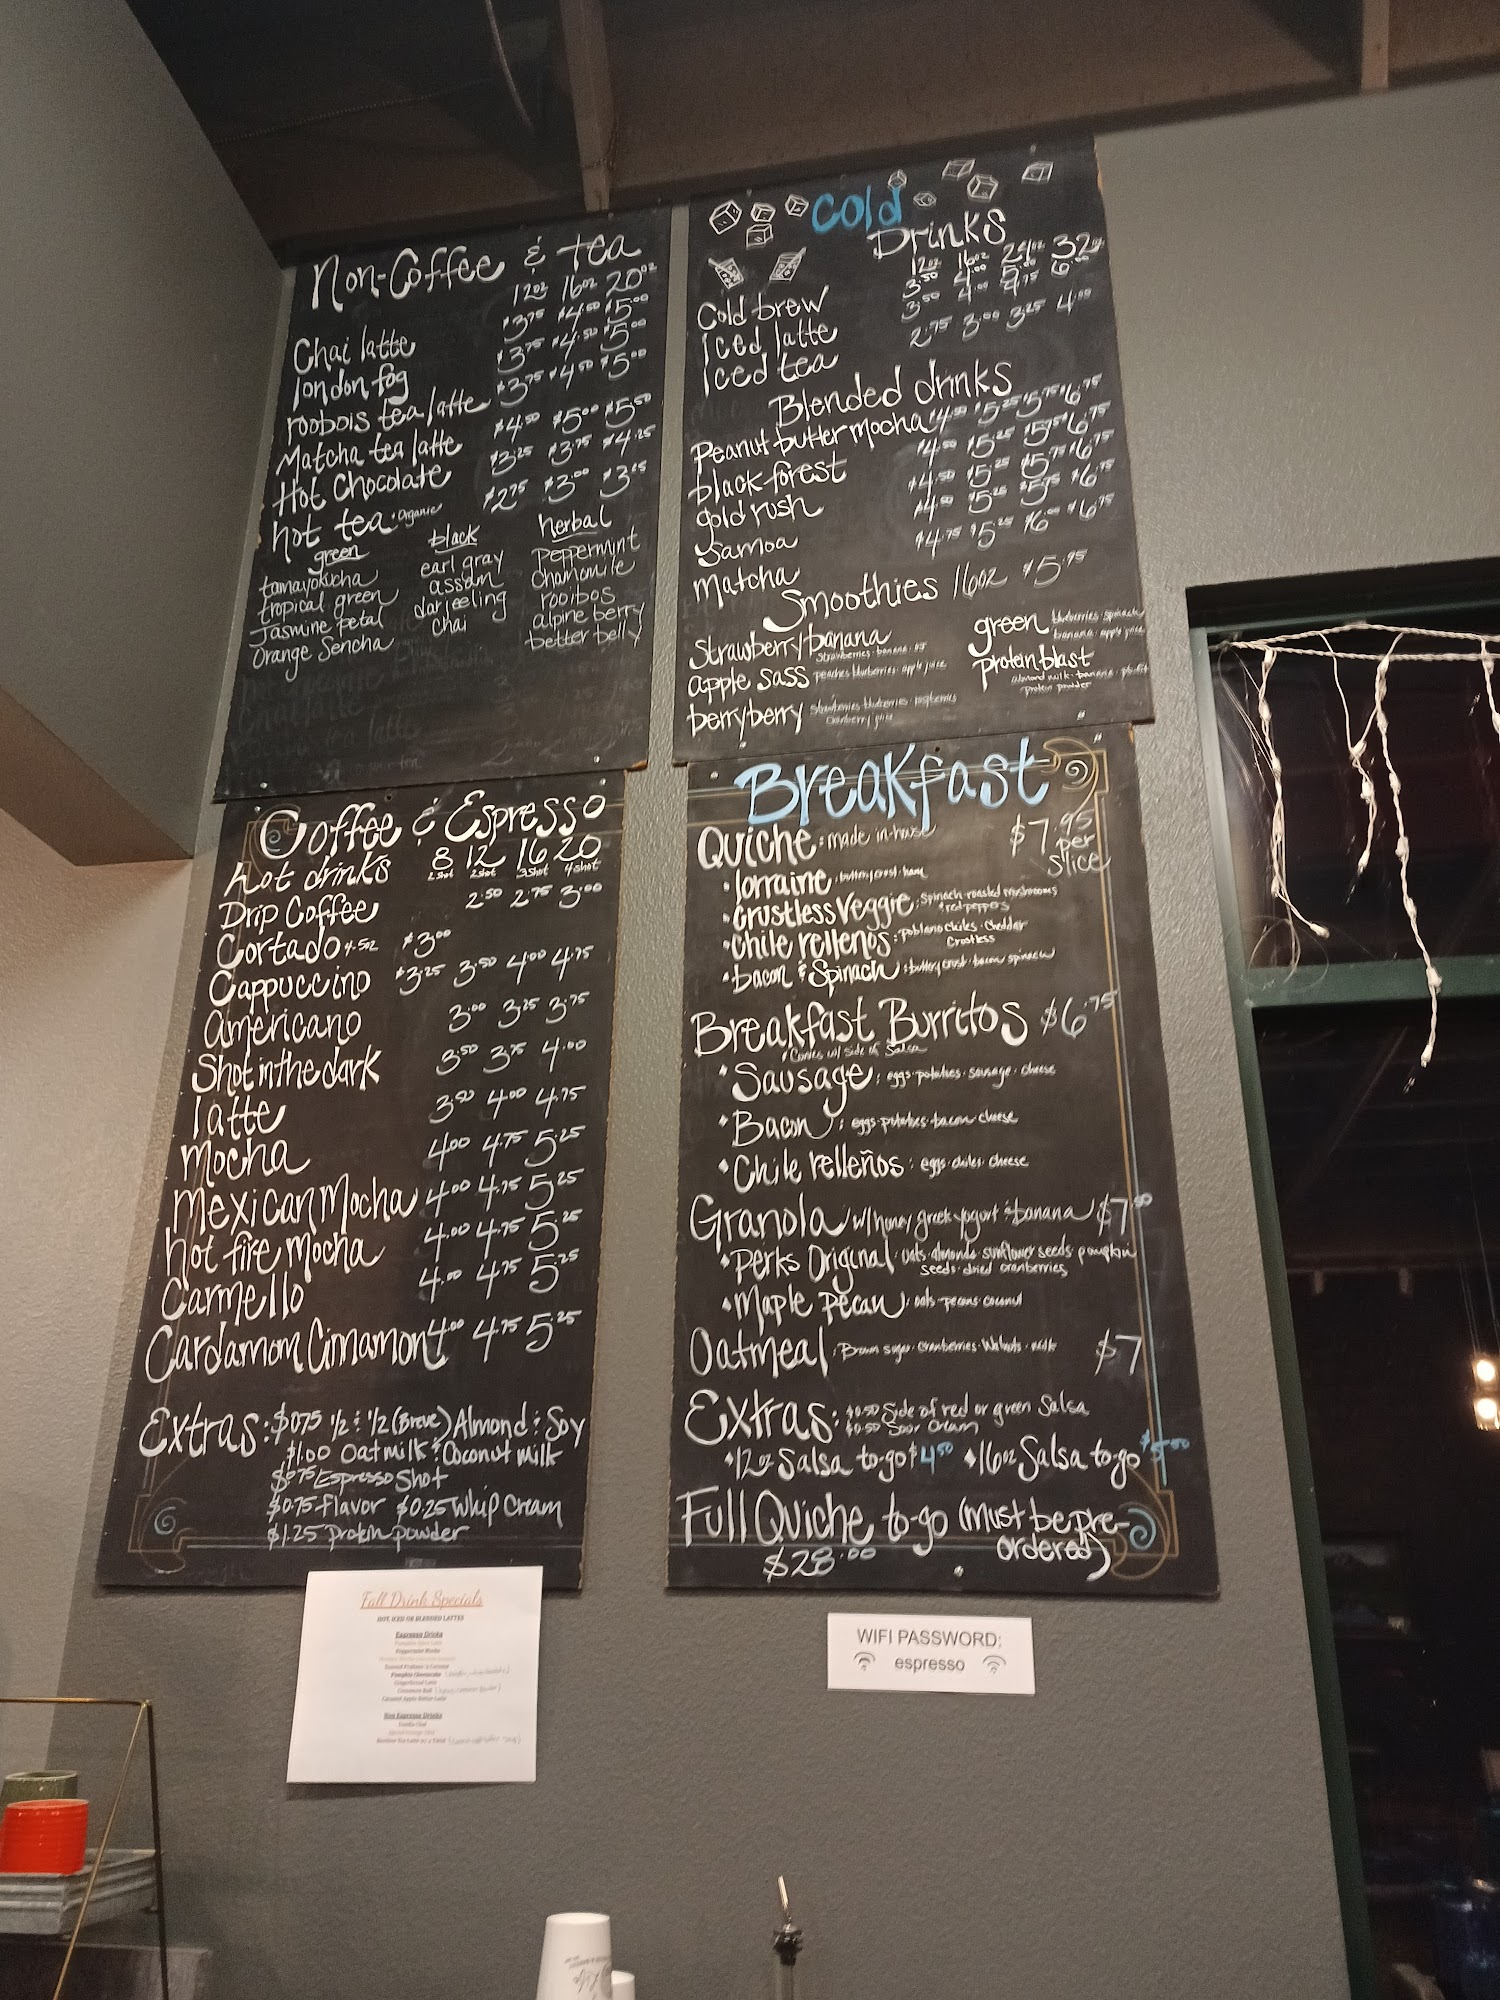 Non-Coffee & tea
12oz 16oz 20oz
Chai latte $3.75 $4.50 $5.00
london fog $3.75 $4.50 $5.00
roobois tea latte $3.75 $4.50 $5.00
Matcha tea latte $4.50 $5.00 $5.50
Hot Chocolate $3.25 $3.75 $4.25
hot tea • Organic $2.75 $3.00 $3.25
green black herbal
tamayokucha earl gray Peppermint
tropical green assam Chamomile
Jasmine petal darjeeling rooibos
Orange Sencha chai alpine berry
better belly
Cold
Drinks
12oz 16oz 24oz 32oz
Cold brew 3.50 4.00 5.00 6.00
Iced latte 3.50 4.00 4.75
Iced tea 2.75 3.00 3.25 4.00
Blended drinks
Peanut butter mocha $4.50 $5.25 $5.75 $6.75
black forest $4.50 $5.25 $5.75 $6.75
gold rush $4.50 $5.25 $5.75 $6.75
Samoa $4.50 $5.25 $5.75 $6.75
Matcha $4.75 $5.25 $6.00 $6.75
Smoothies 16oz $5.95
Strawberry banana
strawberries • banana • OJ
apple sass peaches • blueberries • apple juice
berryberry strawberries • blueberries • raspberries
cranberry juice
green blueberries • spinach
banana • apple juice
protein blast
almond milk • banana
protein powder
Coffee & Espresso
hot drinks 8 12 16 20
2 shot 2 shot 3 shot 4 shot
Drip Coffee 2.50 2.75 3.00
Cortado 4.5oz $3.00
Cappuccino $3.25 3.50 4.00 4.75
americano 3.00 3.25 3.75
Shot in the dark 3.50 3.75 4.00
latte 3.50 4.00 4.75
Mocha 4.00 4.75 5.25
Mexican Mocha 4.00 4.75 5.25
hot fire mocha 4.00 4.75 5.25
Carmello 4.00 4.75 5.25
Cardamom Cinnamon 4.00 4.75 5.25
Extras: $0.75 1/2 & 1/2 (Breve) Almond & Soy
$1.00 Oatmilk & Coconut milk
$0.75 Espresso Shot
$0.75 Flavor $0.25 Whip Cream
$1.25 protein powder
Breakfast
Quiche: made in-house $7.95
per
slice
• lorraine: buttery crust • ham
• Crustless Veggie: Spinach • roasted mushrooms
& red peppers
• Chile relleños: poblano chiles • Cheddar
Crustless
• bacon & Spinach: buttery crust • bacon • spinach
Breakfast Burritos $6.75
• Comes w/ side of Salsa
• Sausage: eggs • potatoes • sausage • cheese
• Bacon: eggs • potatoes • bacon • cheese
• Chile relleños: eggs • chiles • cheese
Granola w/ honey greek yogurt & banana $7.50
• Perks Original: oats • almonds • sunflower seeds • pumpkin
seeds • dried cranberries
• Maple pecan: oats • pecans • coconut
Oatmeal: Brown sugar • cranberries • Walnuts • milk $7
Extras: $0.50 Side of red or green Salsa
$0.50 Sour Cream
• 12oz Salsa to-go $4.50 • 16oz Salsa to-go $5.50
Full Quiche to-go (must be pre-
ordered)
$28.00
Fall Drink Specials
HOT, ICED OR BLENDED LATTES
Espresso Drinks
Pumpkin Spice Latte
Peppermint Mocha
Pumpkin Cheesecake
Gingerbread Latte
Cinnamon Roll
Caramel Apple Butter Latte
Non Espresso Drinks
Vanilla Chai
WIFI PASSWORD:
espresso